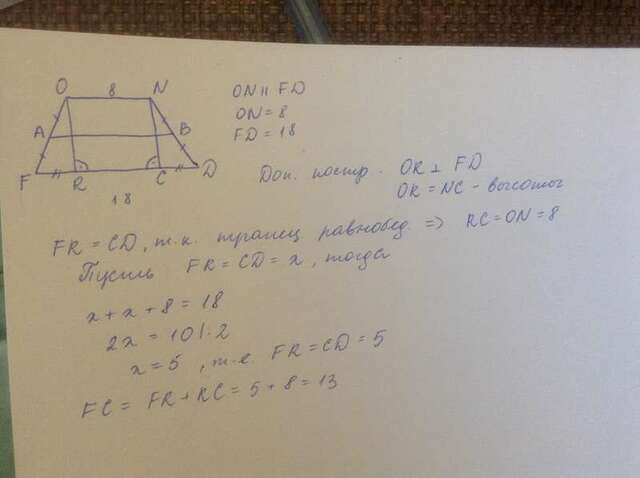 O 8 N
A B
F R C D
18
ON || FD
ON = 8
FD = 18
Доп. постр. OR ⊥ FD
OR = NC - высоты
FR = CD, т.к. трапец равнобед => RC = ON = 8
Пусть FR = CD = x, тогда
x + x + 8 = 18
2x = 10 |: 2
x = 5, т.е FR = CD = 5
FC = FR + RC = 5 + 8 = 13